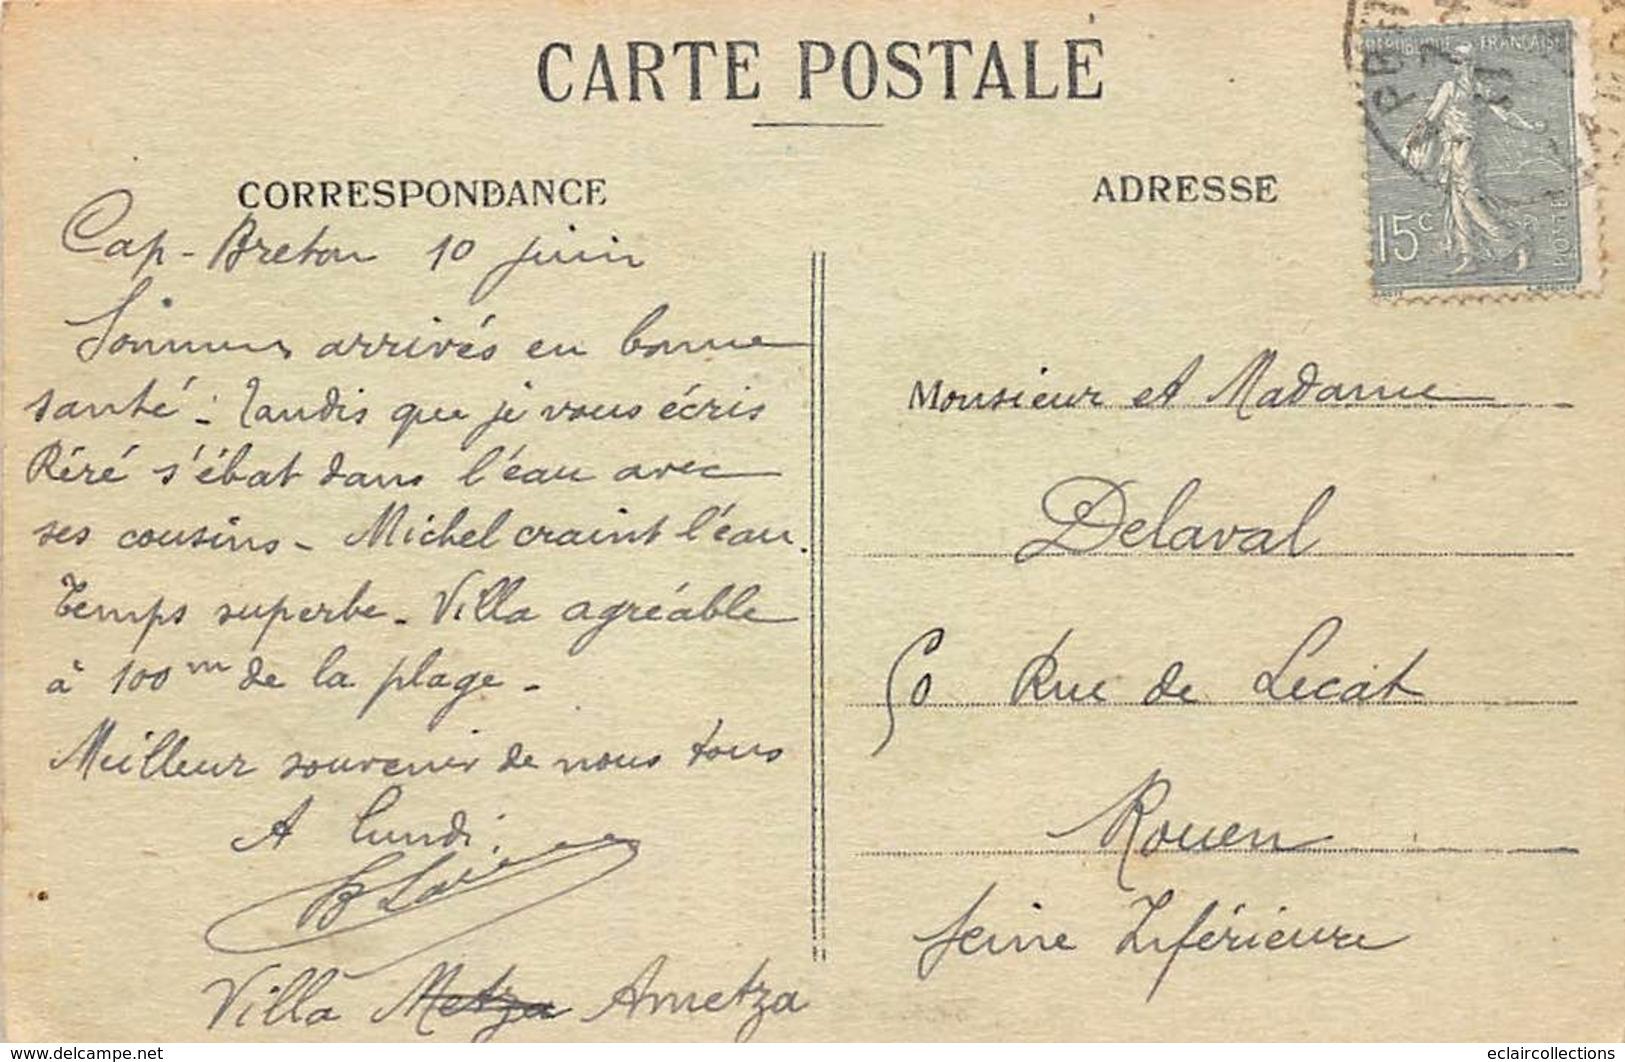 CARTE POSTALE
CORRESPONDANCE
Cap-Breton 10 juin
Sommes arrivés en bonne
santé. Tandis que je vous écris
Réré s'ébat dans l'eau avec
ses cousins - Michel craint l'eau.
Temps superbe - Villa agréable
à 100 m de la plage -
Meilleur souvenir de nous tous
A lundi.
Villa Metza Ametza
ADRESSE
REPUBLIQUE FRANÇAISE
15c
POSTES
Monsieur et Madame
Delaval
50 Rue de Lecat
Rouen
Seine Inférieure
www.delcampe.net
eclaircollections